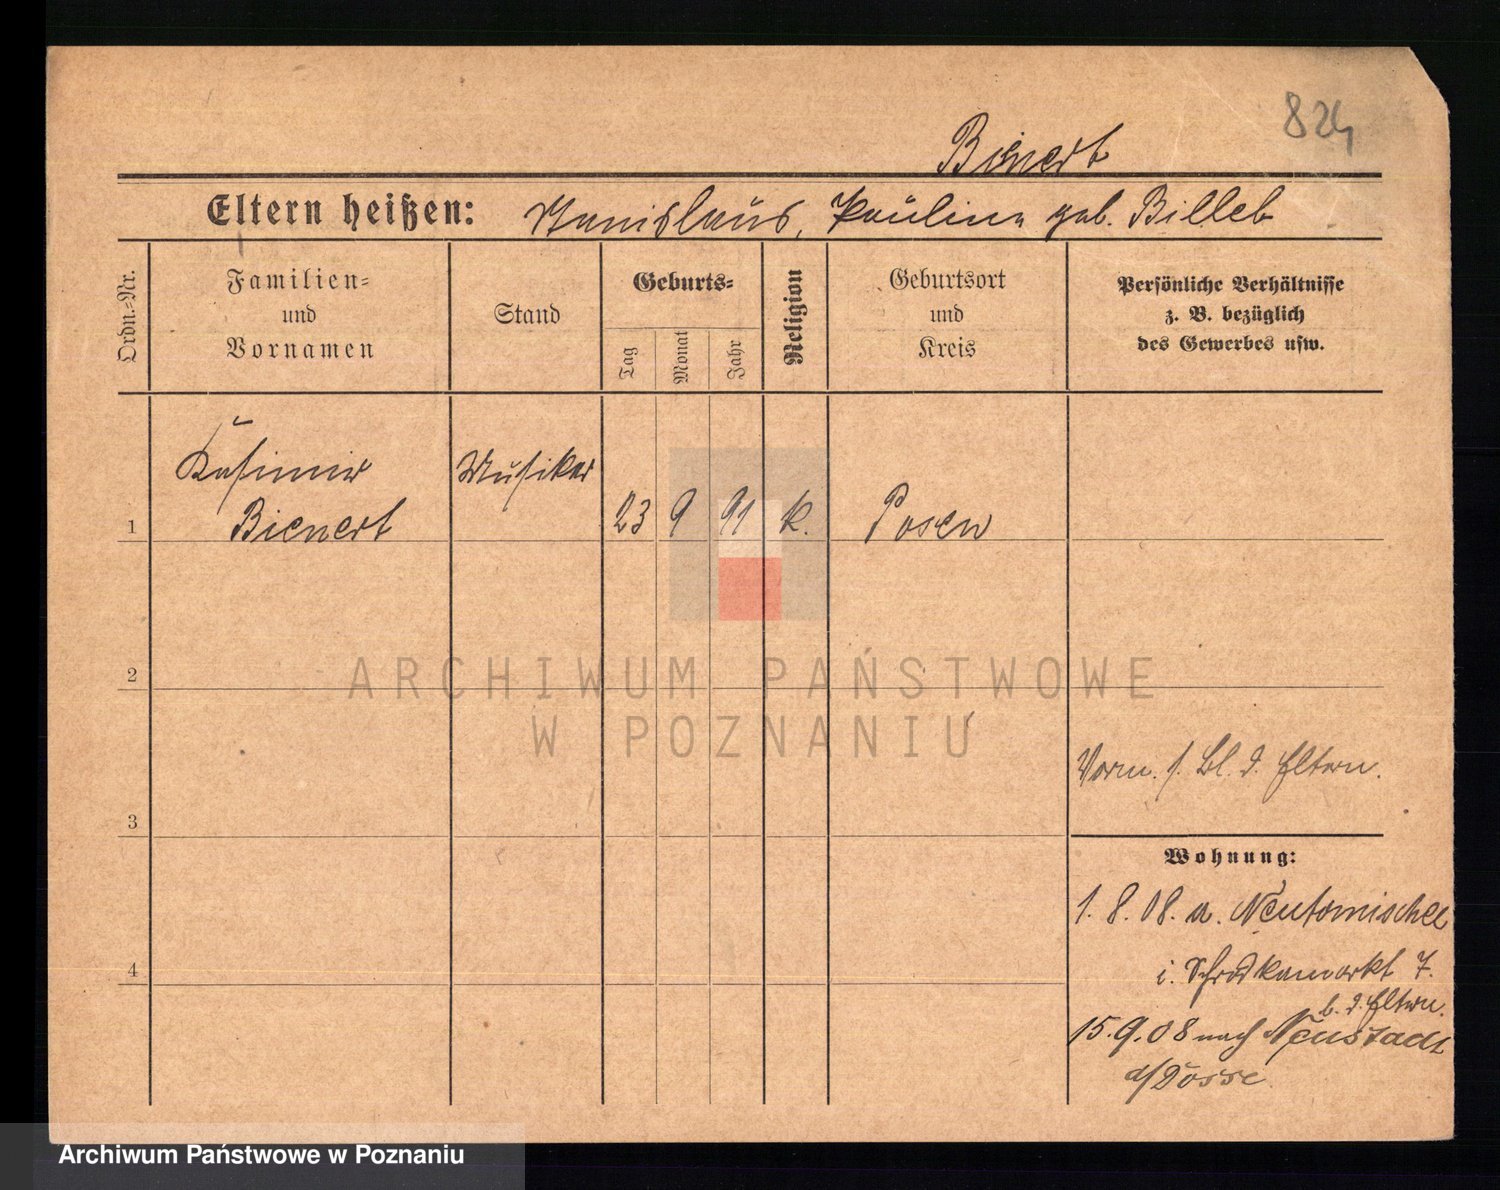 824
Bienert
Eltern heißen: Stanislaus, Paulina geb. Billeb
Ordn.=Nr.
Familien=
und
Vornamen
Stand
Geburts=
Tag
Monat
Jahr
Religion
Geburtsort
und
Kreis
Persönliche Verhältnisse
z. B. bezüglich
des Gewerbes usw.
1
Kasimir
Bienert
Musiker
23 9 91 k. Posen
2
ARCHIWUM PAŃSTWOWE
W POZNANIU
Vorm. s. Bl. d. Eltern.
3
Wohnung:
1. 8. 08. a. Neutomischel
4
i. Schrodkamarkt 7.
b. d. Eltern.
15. 9. 08 nach Neustadt
a/Dosse
Archiwum Państwowe w Poznaniu